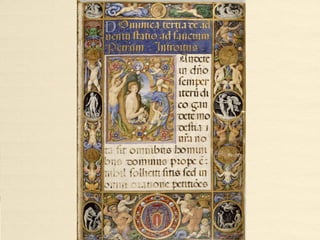 Dominica tertia de ad
uentu statio ad sanctum
Petrum · Introitus
Audete
in dño
semper
iterũ di
co gau
dete mo
destia ı
ura no
ta sit omnibus homini
bus dominus prope ẽ:
nihil solliciti sitis sed in
omni oratione petitiões